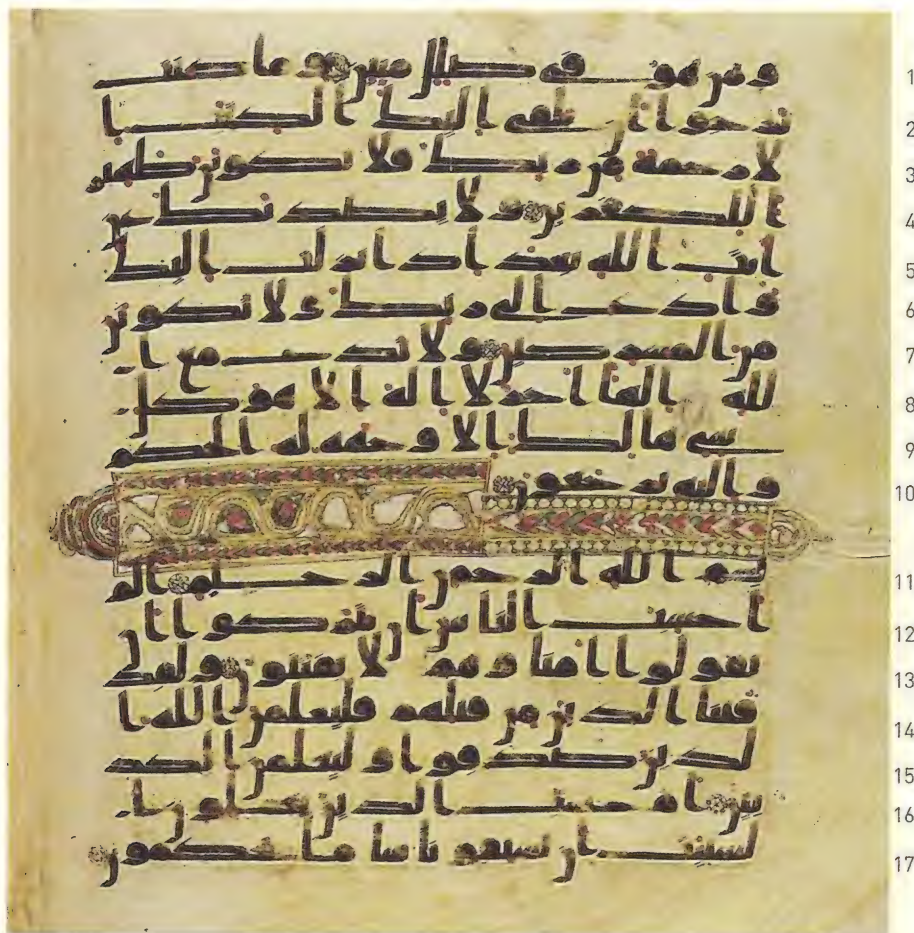 ومن هو في ضلل مبين وما كنت 1
ترجوا ان يلقى اليك الكتب ا 2
لا رحمة من ربك فلا تكونن ظهير 3
ا للكفرين ولا يصدنك عن 4
ايت الله بعد اذ انزلت اليك 5
وادع الى ربك ولا تكونن 6
من المشركين ولا تدع مع ا 7
لله الها اخر لا اله الا هو كل 8
شي هالك الا وجهه له الحكم 9
واليه ترجعون 10
بسم الله الرحمن الرحيم الم 11
احسب الناس ان يتركوا ان 12
يقولوا امنا وهم لا يفتنون ولقد 13
فتنا الذين من قبلهم فليعلمن الله ا 14
لذين صدقوا وليعلمن الكذ 15
بين ام حسب الذين يعملون ا 16
لسيت ان يسبقونا سا ما يحكمون 17